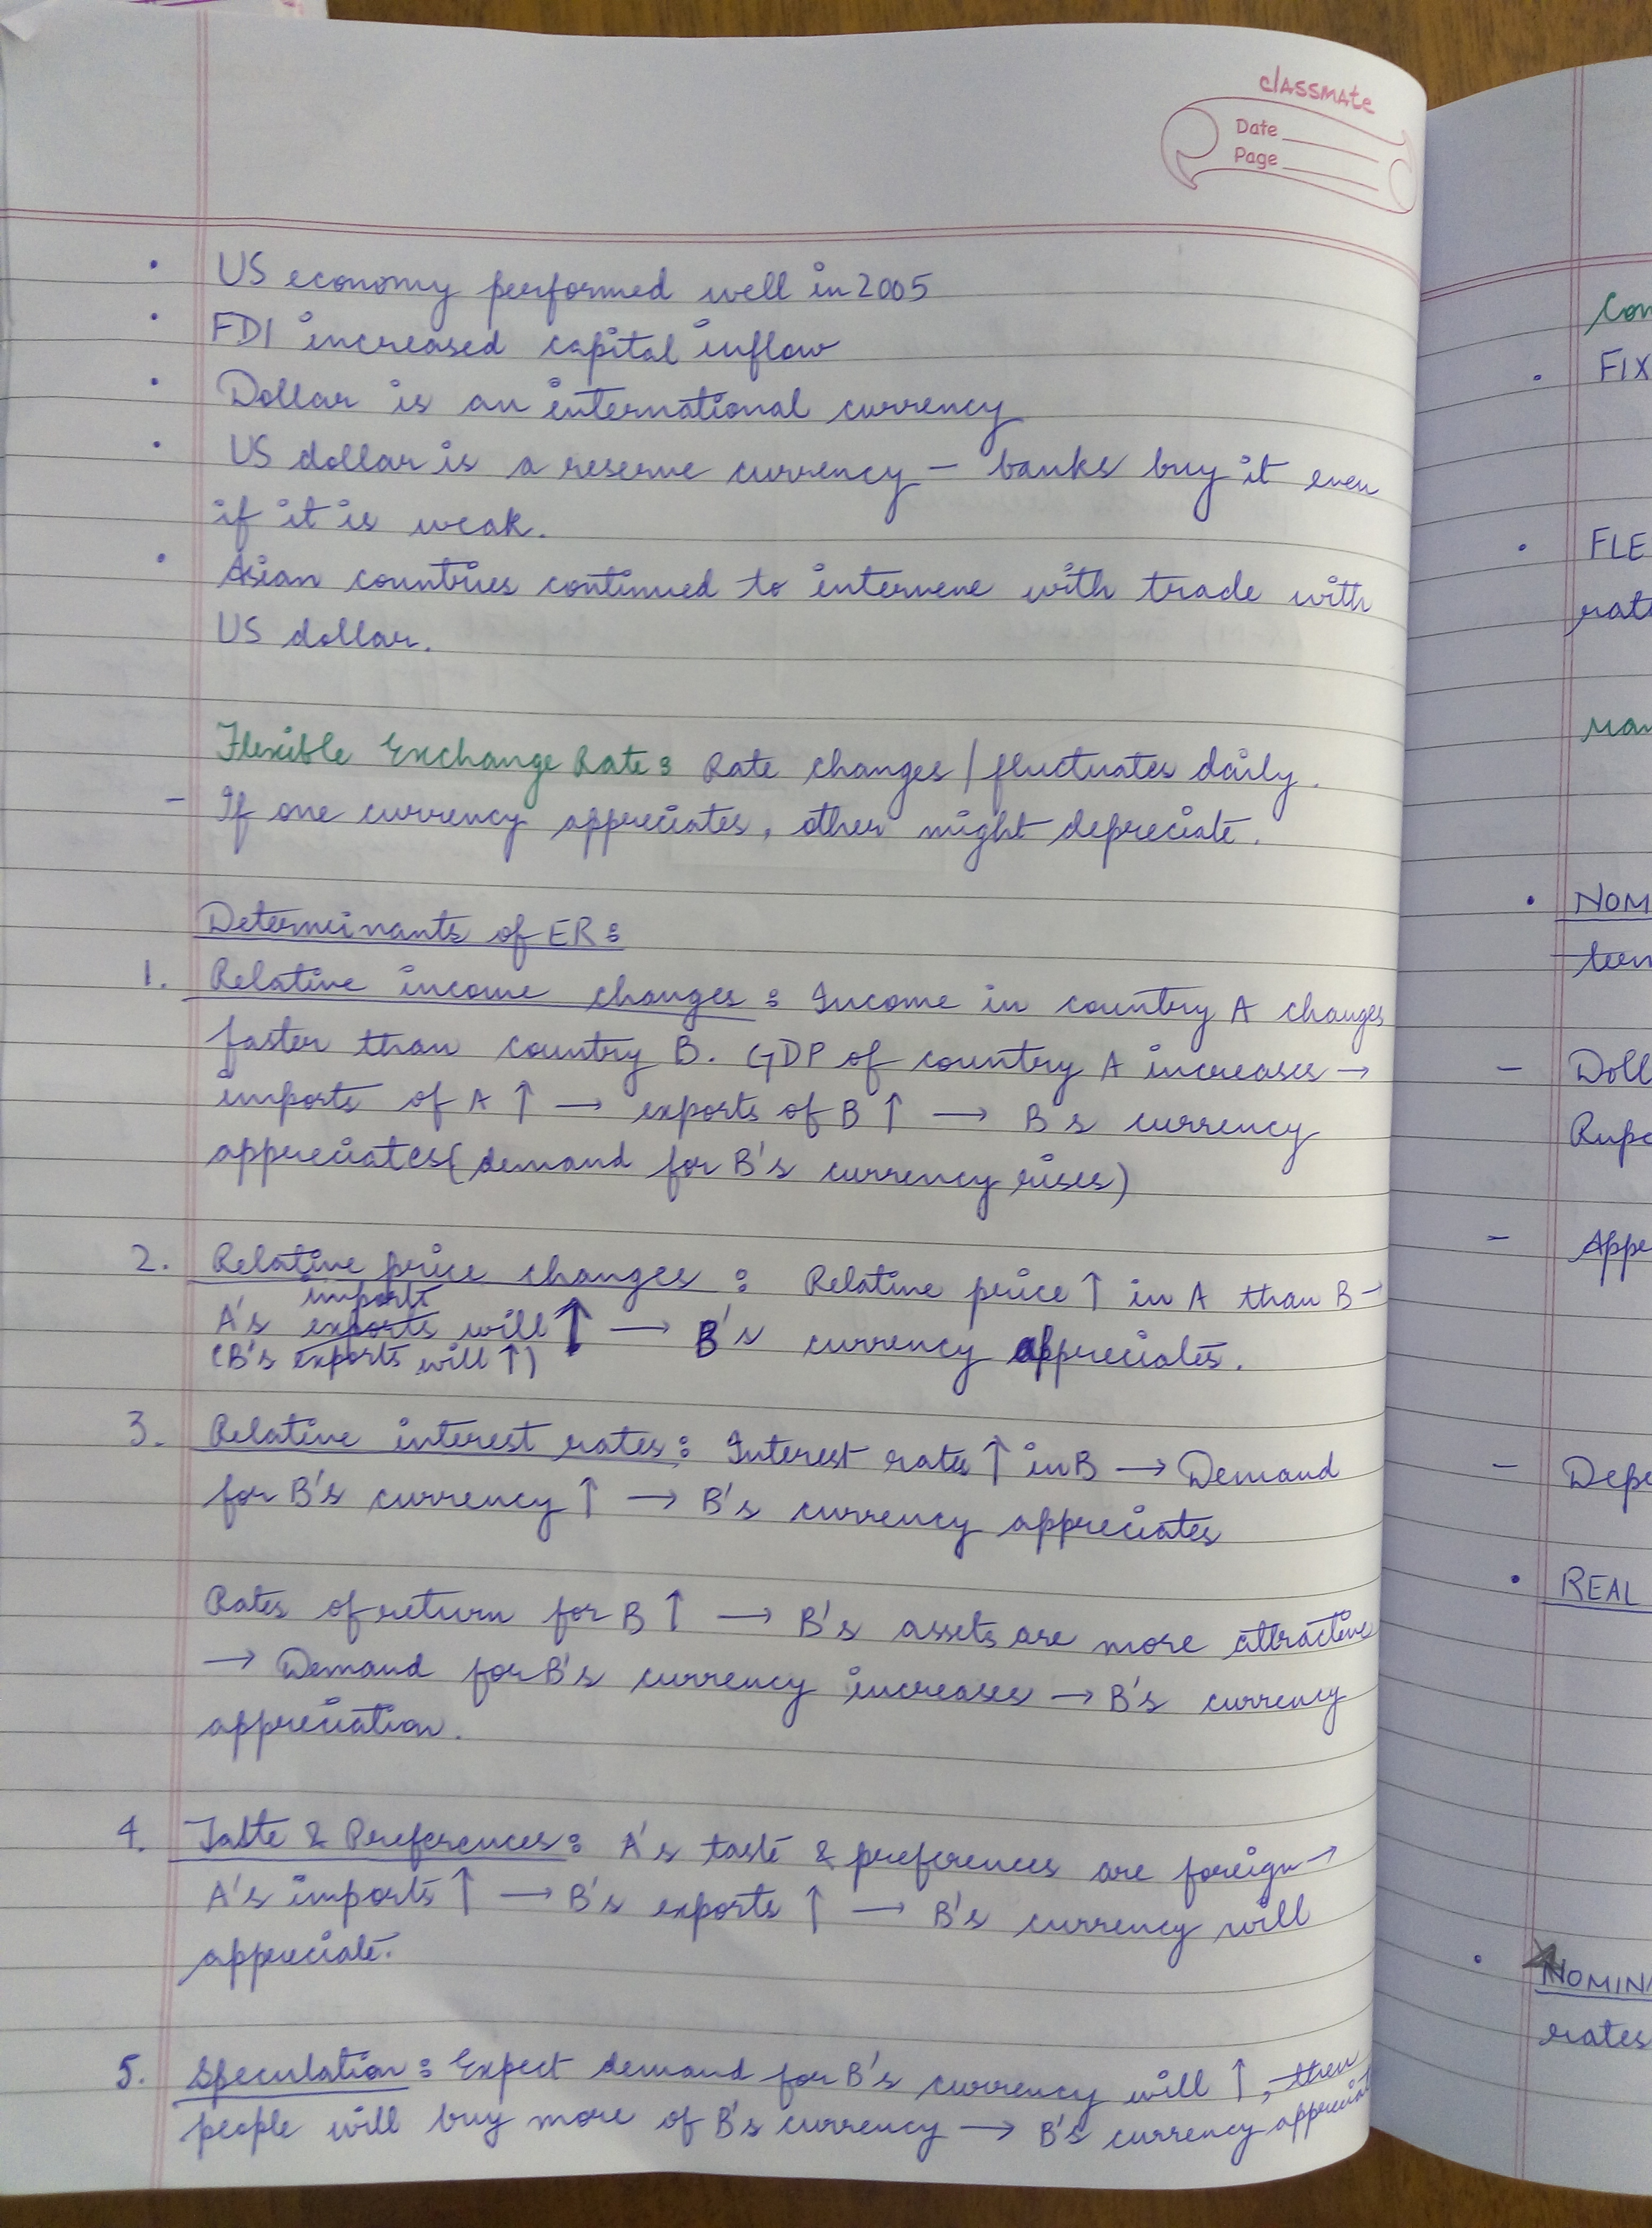 classmate
Date
Page
• US economy performed well in 2005
• FDI increased capital inflow
• Dollar is an international currency
• US dollar is a reserve currency – banks buy it even
if it is weak.
• Asian countries continued to intervene with trade with
US dollar.
Flexible Exchange Rate: Rate changes / fluctuates daily.
– If one currency appreciates, other might depreciate.
Determinants of ER:
1. Relative income changes: Income in country A changes
faster than country B. GDP of country A increases →
imports of A ↑ → exports of B ↑ → B s currency
appreciates (demand for B's currency rises)
2. Relative price changes: Relative price ↑ in A than B →
imports
A's exports will ↑ → B's currency appreciates.
(B's exports will ↑)
3. Relative interest rates: Interest rates ↑ in B → Demand
for B's currency ↑ → B's currency appreciates
Rates of return for B ↑ → B's assets are more attractive
→ Demand for B's currency increases → B's currency
appreciation.
4. Taste & Preferences: A's taste & preferences are foreign →
A's imports ↑ → B's exports ↑ → B's currency will
appreciate.
5. Speculation: Expect demand for B's currency will ↑, then
people will buy more of B's currency → B's currency appreciat
Con
• FIX
• FLE
rat
Man
• NOM
– Doll
Rupe
– Appe
– Depe
• REAL
• NOMIN
rates